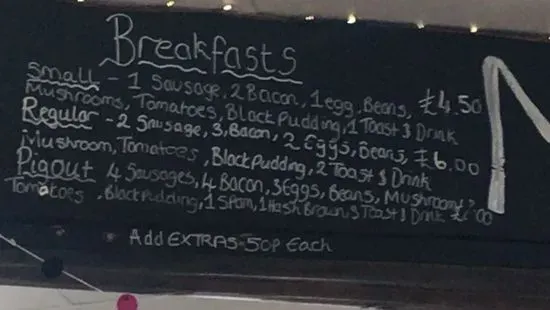 Breakfasts
Small - 1 Sausage, 2 Bacon, 1 egg, Beans, £4.50
Mushrooms, Tomatoes, Black Pudding, 1 Toast & Drink
Regular - 2 Sausage, 3, Bacon, 2 Eggs, Beans, £6.00
Mushroom, Tomatoes, Black Pudding, 2 Toast & Drink
Pigout 4 Sausages, 4 Bacon, 3 Eggs, Beans, Mushrooms
Tomatoes, Black Pudding, 1 Spam, 1 Hash Brown, 3 Toast & Drink
Add EXTRAS-50P Each